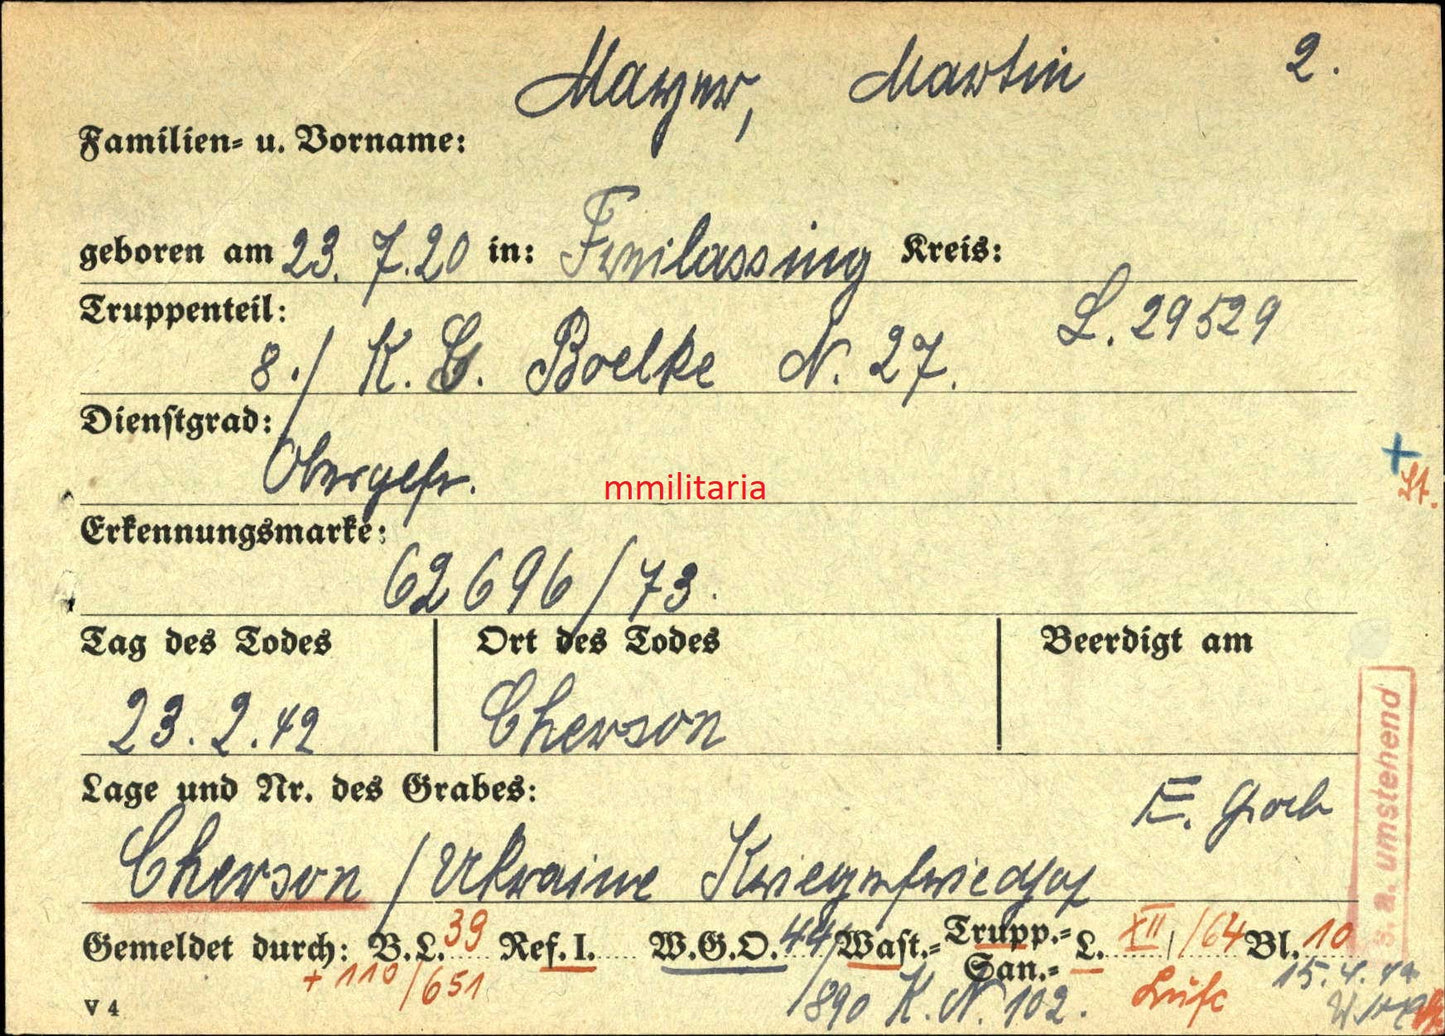 Mayer, Martin 2.
Familien- u. Vorname:
geboren am 23. 7. 20 in: Freilassing Kreis:
Truppenteil: L. 29529
8./ K. G. Boelke N. 27.
Dienstgrad:
Obergefr.
mmilitaria
Erkennungsmarke:
62696/73.
Tag des Todes Ort des Todes Beerdigt am
23. 2. 42 Cherson
Lage und Nr. des Grabes: E. Grab
Cherson / Ukraine Kriegerfriedhof
s. a. umstehend
Gemeldet durch: B.L. 39 Ref. I. W.G.O. 44/ Wast.- Trupp.- San.- L. XII /64 Bl. 10
+ 110/651 890 K. N. 102. 15. 4. 42
V 4